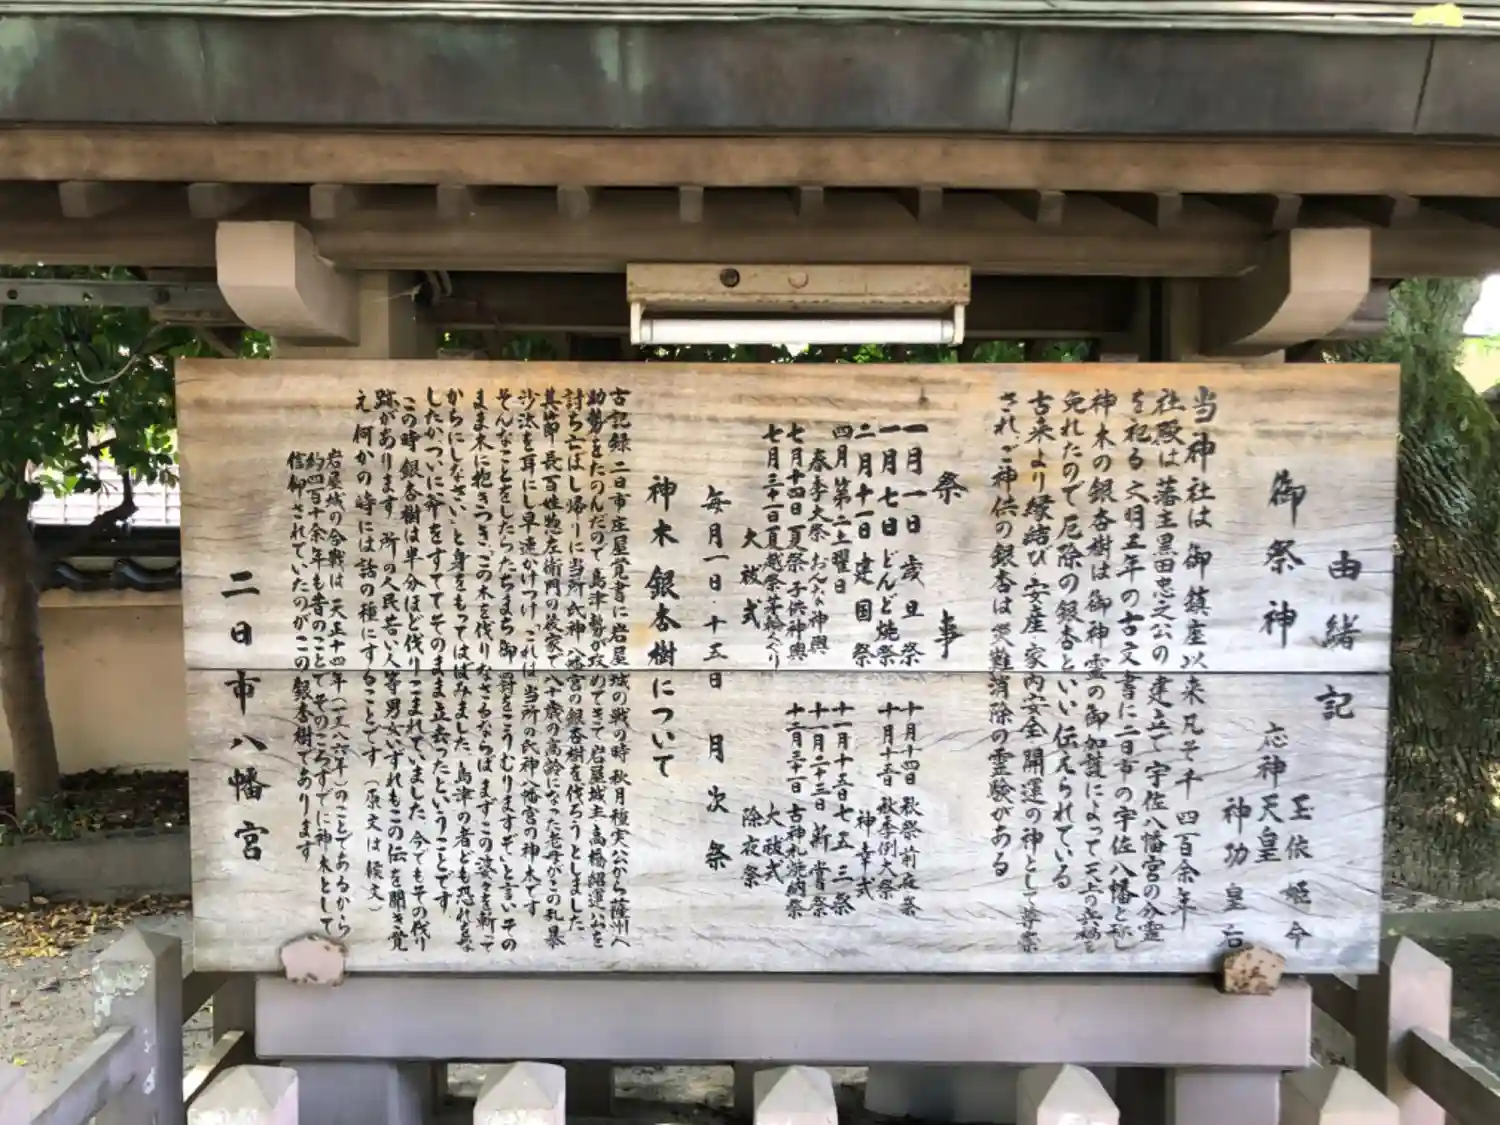 由緒記
御祭神
玉依姫命
応神天皇
神功皇后
当神社は御鎮座以来凡そ千四百余年
社殿は藩主黒田忠之公の建立で宇佐八幡宮の分霊
を祀る文明五年の古文書に二日市の宇佐八幡と称し
神木の銀杏樹は御神霊の御加護によって天上の
免れたので厄除の銀杏といい伝えられている
古来より縁結び・安産・家内安全・開運の神として尊崇
され、ご神供の銀杏は災難消除の霊験がある
祭事
一月一日 歳旦祭
一月七日 どんど焼祭
二月十一日 建国祭
四月第二土曜日
春季大祭 おんな神輿
七月十四日 夏祭 子供神輿
七月三十一日 夏越祭 茅輪くぐり
大祓式
十月十四日 秋祭前夜祭
十月十五日 秋季例大祭
神幸式
十一月十五日 七五三祭
十一月二十三日 新嘗祭
十二月三十一日 古神札焼納祭
大祓式
除夜祭
毎月一日・十五日 月次祭
神木銀杏樹について
古記録 二日市庄屋覚書に岩屋城の戦の時秋月種実公から薩州へ
助勢をたのんだので島津勢が攻めてきて岩屋城主高橋紹運公を
討ち亡ぼし帰りに当所氏神八幡宮の銀杏樹を伐ろうとしました
其節長百姓惣左衛門の後家で八十歳の高齢になった老母がこの乱暴
沙汰を耳にし早速かけつけ、これは当所の氏神八幡宮の神木です
そんなことをしたらたちまち御罰をこうむりますぞ、と言い、その
まま木に抱きつき、この木を伐りなさるならば、まずこの婆々を斬って
からにしなさい、と身をもってはばみました、島津の者ども恐れをな
したか、ついに斧をすててそのまま立去ったということです
この時銀杏樹は半分ほど伐りこまれていました、今でもその伐り
跡があります、所の人民若い人等男女いずれもこの伝を聞き覚
え何かの時には話の種にすることです（原文は候文）
岩屋城の合戦は天正十四年（一五八六年）のことであるから
約四百十余年も昔のことで、そのころすでに神木として
信仰されていたのがこの銀杏樹であります
二日市八幡宮